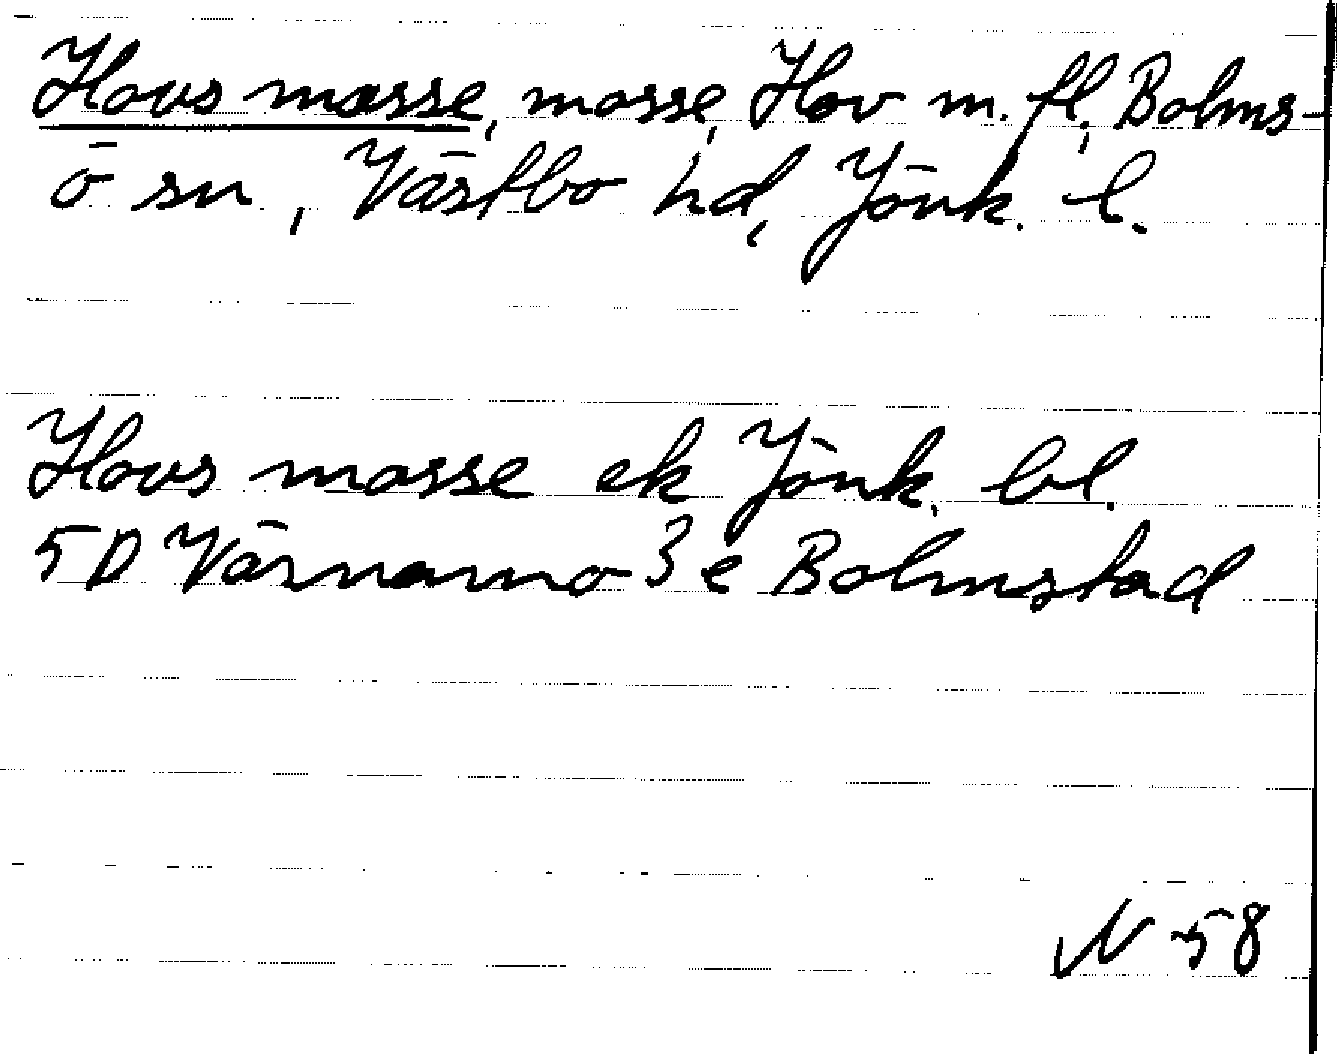 Hovs mosse, mosse, Hov m. fl, Bolms-
ö sn, Västbo hd, Jönk. l.
Hovs mosse ek Jönk. bl.
5D Värnamo 3 e Bolmstad
N 58